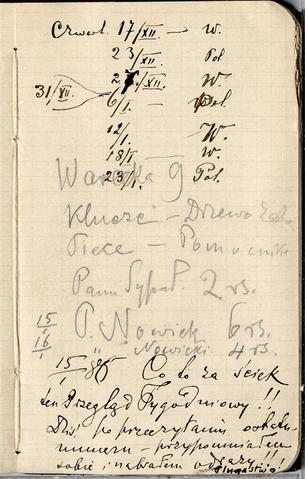 Czwart. 17/XII. — W.
23/XII. Pol
27./XII. W.
31/XII.
6/I. — Pol.
12/I. — W.
18/I — W.
23/I. Pol.
Warecka 9
Klucze — Drzewo
Piece — Pomocnik
Pann Sypal. 2 rs.
15/I P. Nowick 6 rs.
16/I " Nowicki 4 rs.
15/I 86 Co to za ściek
ten Przegląd Tygodniowy!!
Dziś po przeczytaniu ostatn.
numeru — przypomniałem
sobie i nabrałem odrazy!!